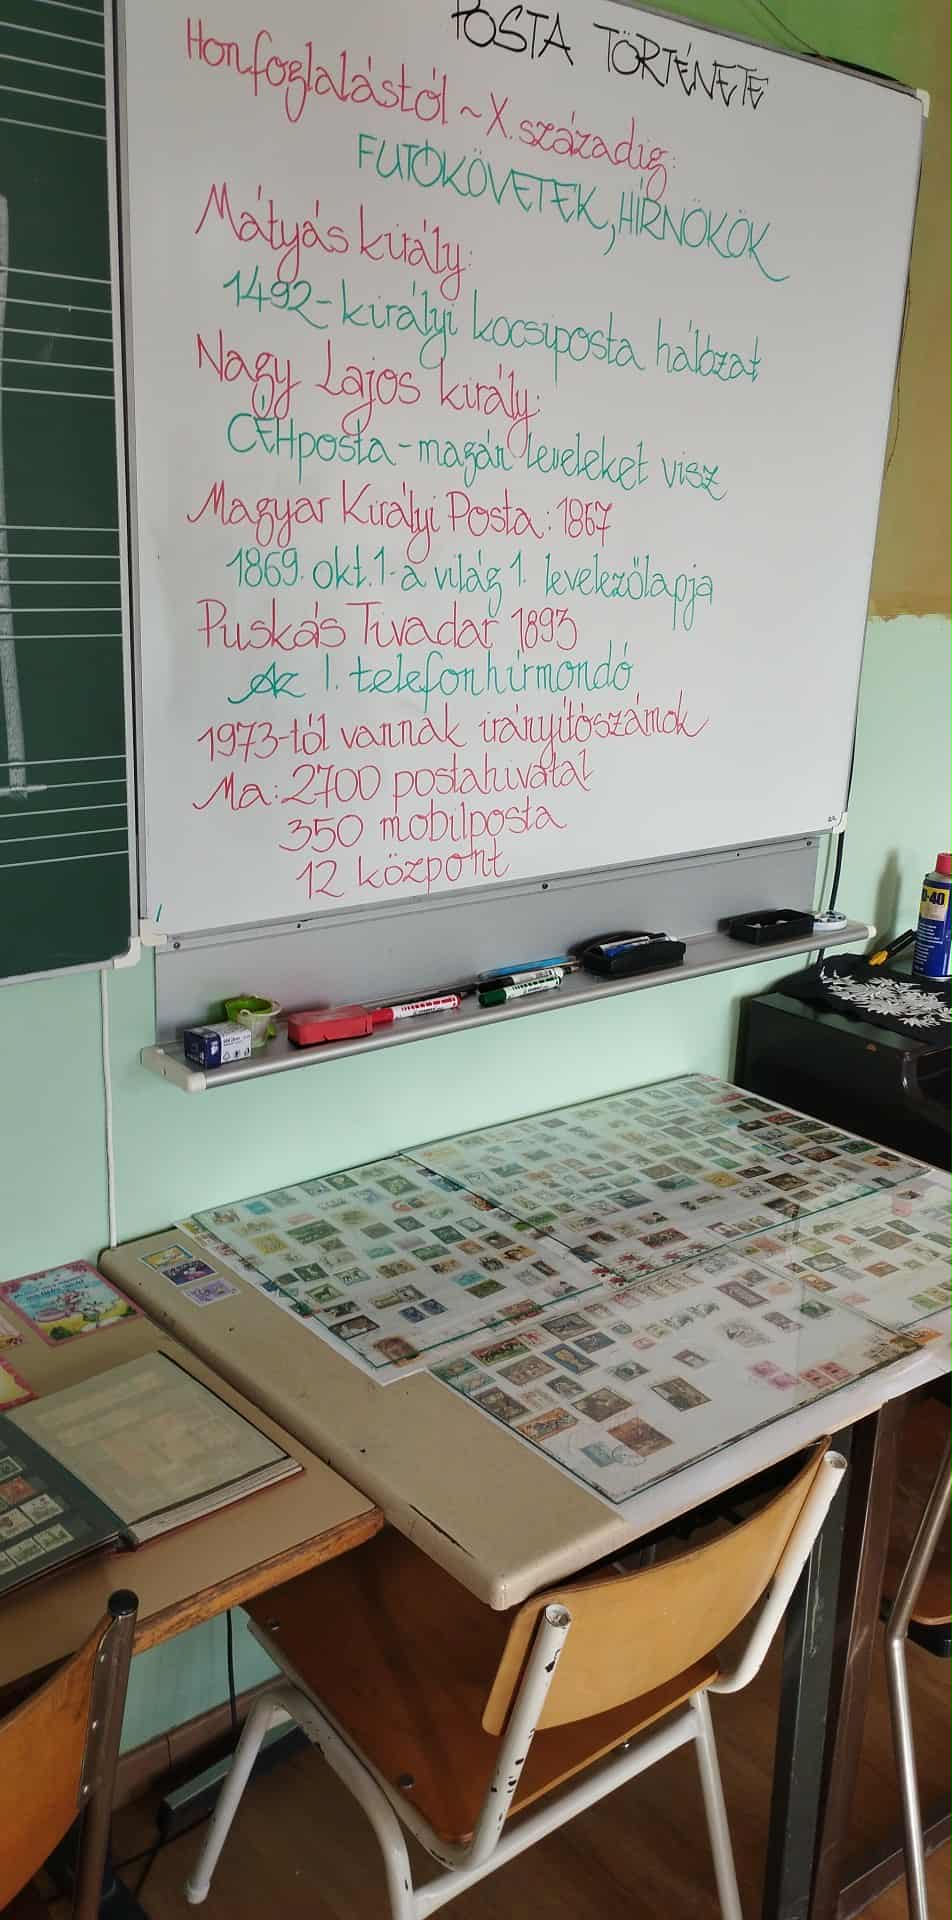 POSTA TÖRTÉNETE
Honfoglalástól ~ X. századig:
FUTÓKÖVETEK, HÍRNÖKÖK
Mátyás király:
1492 - királyi kocsiposta hálózat
Nagy Lajos király:
CÉHposta - magán leveleket visz
Magyar Királyi Posta: 1867
1869. okt. 1- a világ 1. levelezőlapja
Puskás Tivadar 1893
Az 1. telefonhírmondó
1973-tól vannak irányítószámok
Ma: 2700 postahivatal
350 mobilposta
12 központ